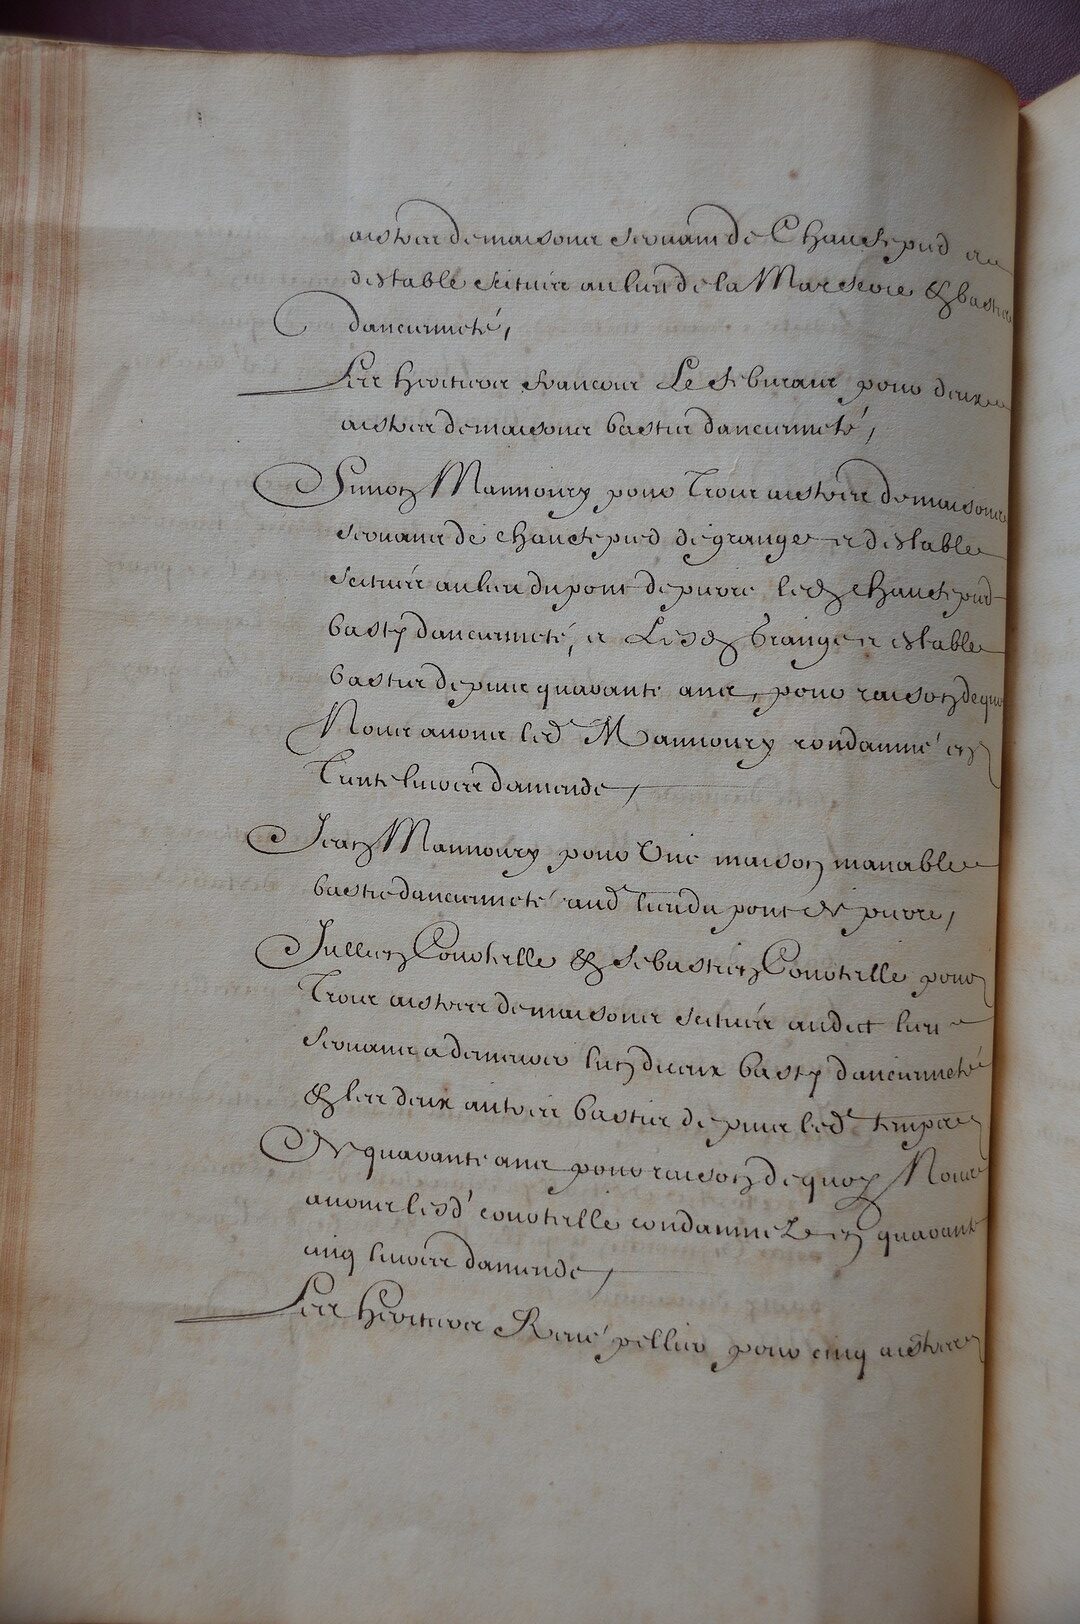 aistres de maisons servans de Chaucfepied et
destable scituéz au lieu de la Marserie & bastis
dancienneté,
Les heritiers francois Le feburaux pour deux
aistres de maisons bastis dancienneté,
Simon Mannoury pour Trois aistres de maisons
servans de chaucfepied de grange et destable
scituéz au lieu du pont de pierre led chaucfepied
basty dancienneté, et Lesd grange et estable
bastis depuis quarante ans, pour raison de quoy
Nous avons led Mannoury condamné en
Trente livres damende,
Jean Mannoury pour Une maison manable
bastie dancienneté aud lieu du pont de pierre,
Jullien Courteille & Sebastien Courteille pour
Trois aistres de maisons scituéz audict lieu
servans a demeurer lun diceux basty dancienneté
& les deux autres bastis depuis led temps
de quarante ans pour raison de quoy Nous
avons lesd courteille condamnez en quarante
cinq livres damende,
Les heritiers René pellier pour cinq aistres